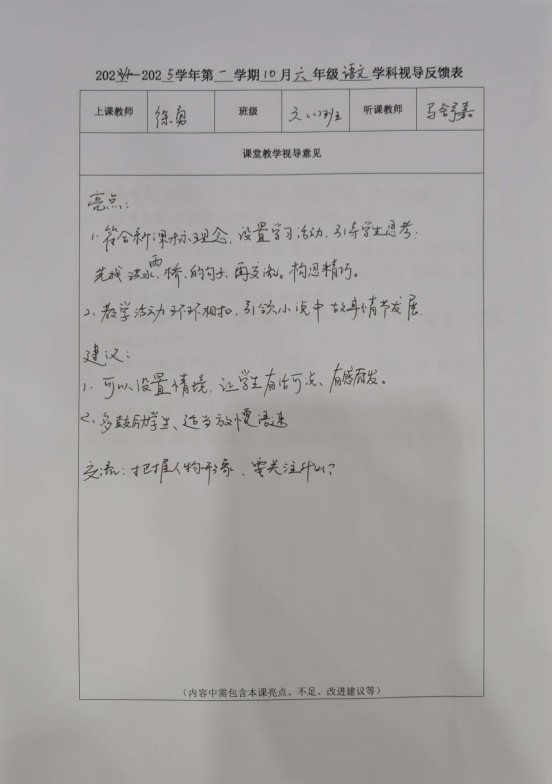 2024-2025学年第一学期10月六年级语文学科视导反馈表
上课教师 徐勇 班级 六(1)班 听课教师 马舒嘉
课堂教学视导意见
亮点:
1. 符合新课标理念，设置学习活动，引导学生思考:
先找洪水、雨、桥、的句子，再交流。构思精巧。
2、教学活动环环相扣，引领小说中故事情节发展.
建议:
1. 可以设置情境，让学生有话可说、有感而发。
2、多鼓励学生、适当放慢语速
交流: 把握人物形象，要关注什么?
(内容中需包含本课亮点、不足、改进建议等)